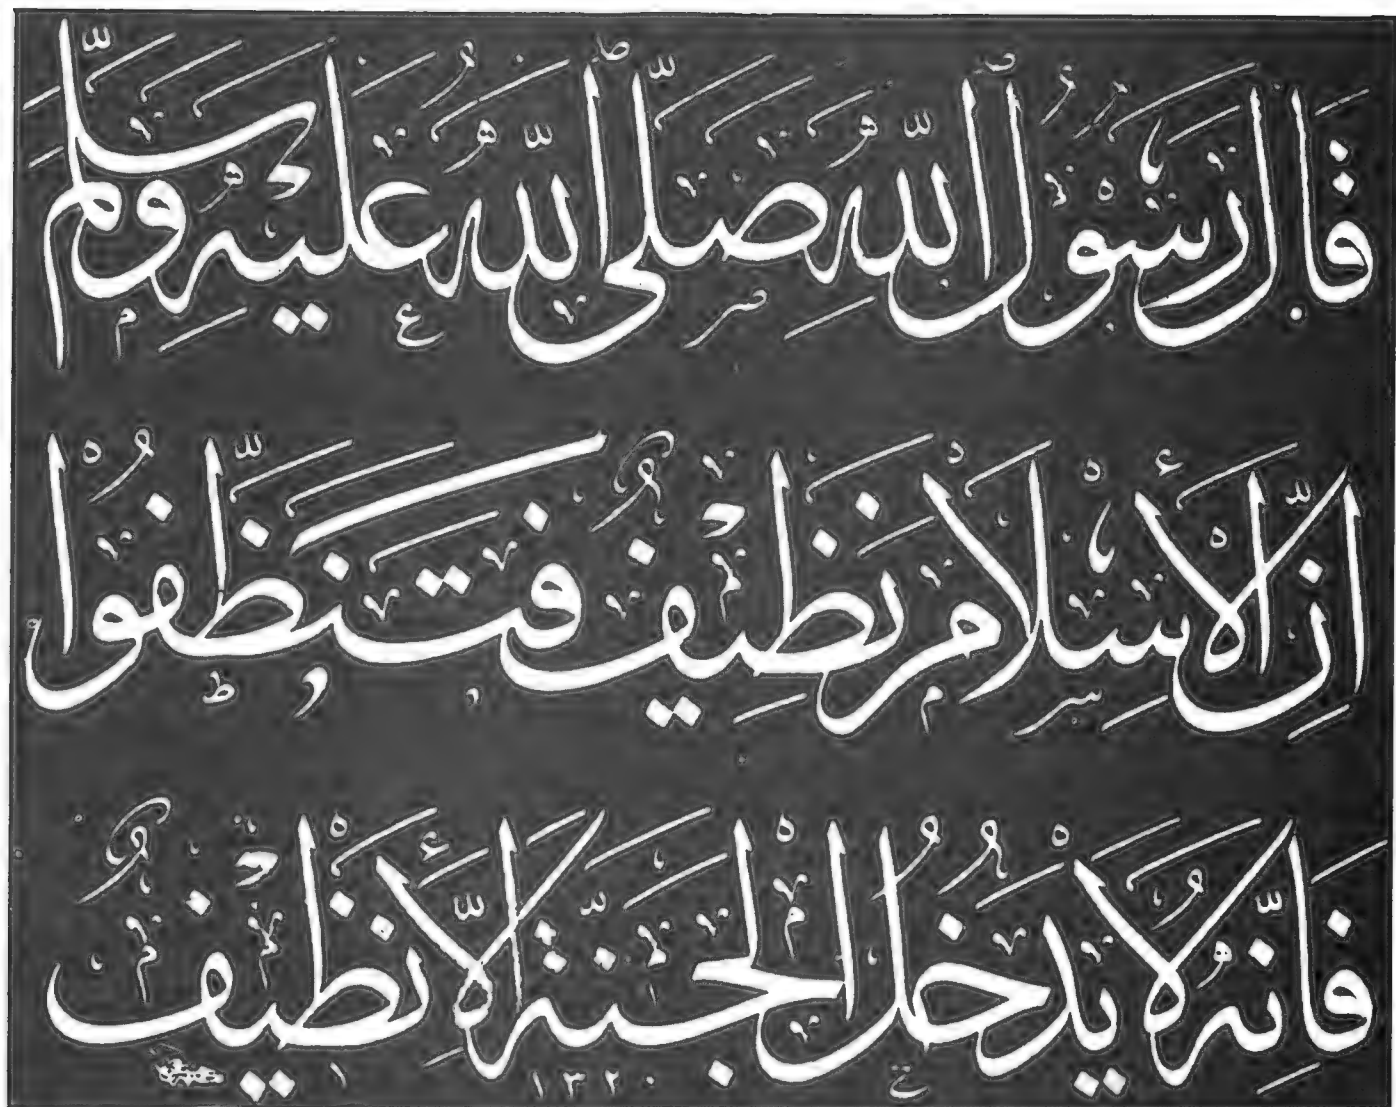 قَالَ رَسُولُ اللّٰهِ صَلَّى اللّٰهُ عَلَيْهِ وَسَلَّمَ
اِنَّ الْأِسْلَامَ نَظِيفٌ فَتَنَظَّفُوْا
فَاِنَّهُ لَا يَدْخُلُ الْجَنَّةَ اِلَّا نَظِيْفٌ
١٣٢٠